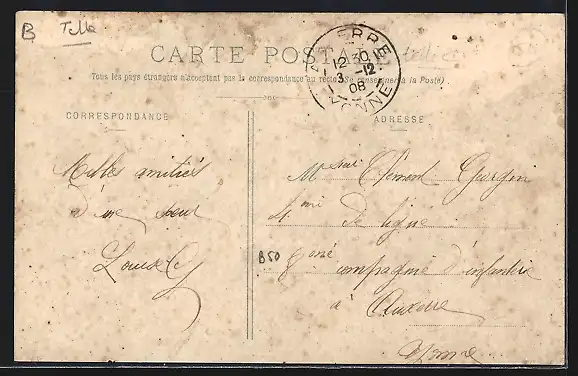 B
CARTE POSTALE
AUXERRE
12 30
3 -12
08
YONNE
Tous les pays étrangers n'acceptent pas la correspondance au recto (Se renseigner à la Poste)
CORRESPONDANCE
ADRESSE
Milles amitiés
d'une sœur
Louise
Clément
4me de ligne
B50
compagnie d'infanterie
à Auxerre
Yonne